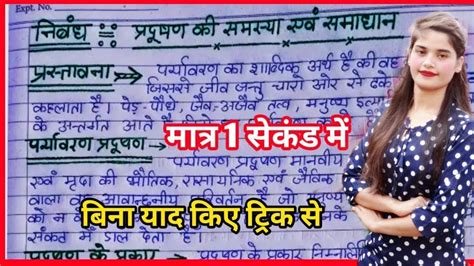 Expt. No.
निबंध :: प्रदूषण की समस्या एवं समाधान
प्रस्तावना → पर्यावरण का शाब्दिक अर्थ है की वह
जिससे जीव जन्तु चारों ओर से ढके
कहलाता है। पेड़-पौधे, जैव-अजैव तत्व, मनुष्य इत्या
के अन्तर्गत आते
मात्र 1 सेकंड में
पर्यावरण प्रदूषण → पर्यावरण प्रदूषण मानवीय
एवं मृदा की भौतिक, रासायनिक एवं जैविक
वाला वह अवान्छनीय परिवर्तन है जो
को न
बिना याद किए ट्रिक से
संकट में डाल देता है।
प्रदूषण के प्रकार → प्रदूषण के प्रकार निम्नलि